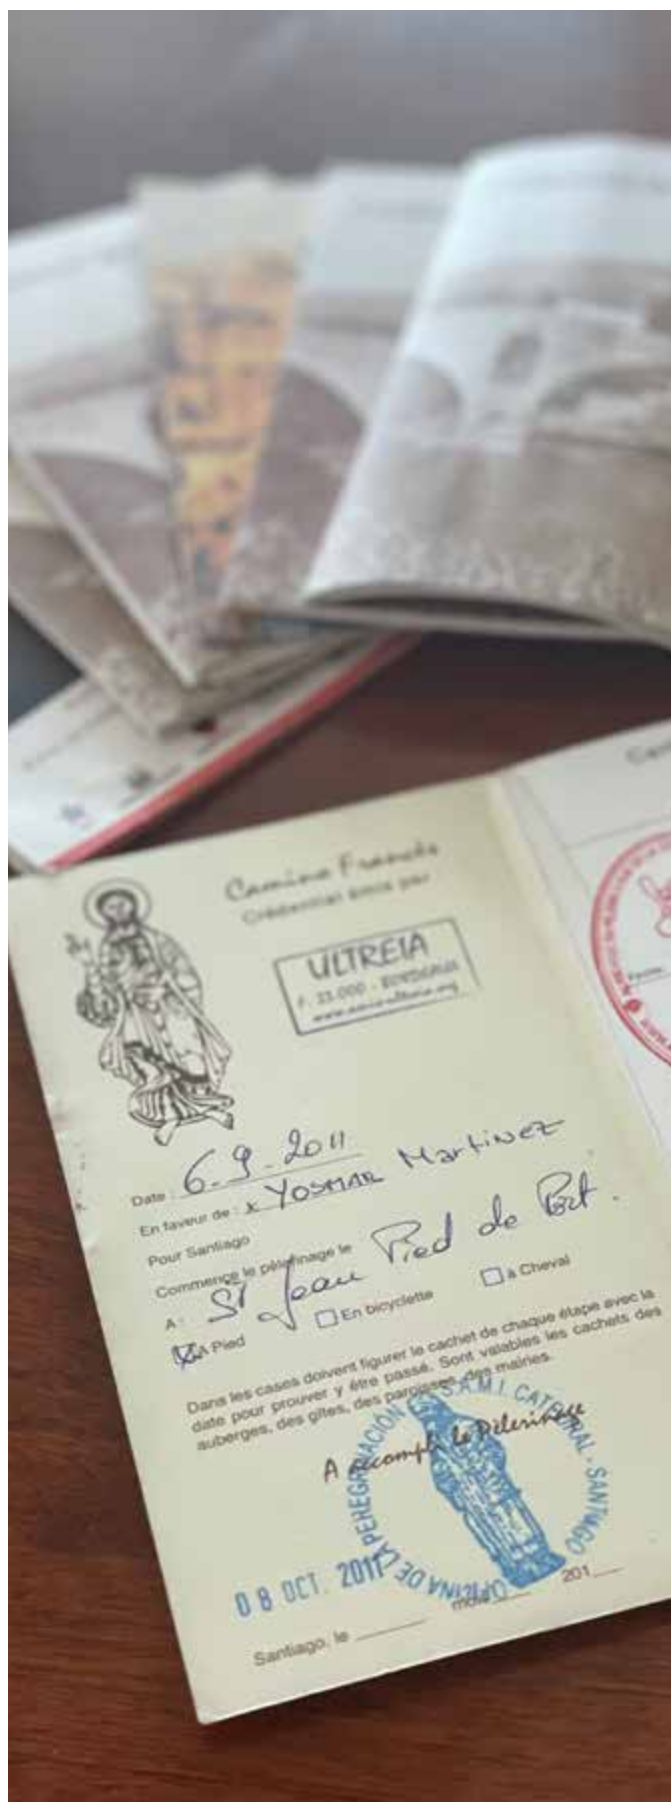 Camino Francés
Crédential émis par
ULTREIA
33.000 - BORDEAUX
Date : 6.9.2011
En faveur de : x YOSMAR Martinez
Pour Santiago
Commence le pèlerinage le
A : St Jean Pied de Port.
A Pied En bicyclette à Cheval
Dans les cases doivent figurer le cachet de chaque étape avec la
date pour prouver y être passé. Sont valables les cachets des
auberges, des gîtes, des paroisses, des mairies.
A accompli le Pèlerinage
OFICINA DE LA PEREGRINACIÓN S.A.M.I. CATEDRAL - SANTIAGO
08 OCT. 2011
Santiago, le mois 201